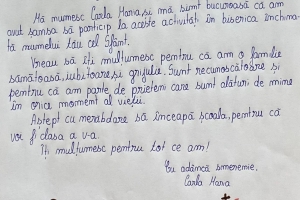 Mă numesc Carla Maria, și mă sunt bucuroasă că am
avut șansa să particip la aceste activități în biserica închina
tă numelui tău cel Sfânt.
Vreau să îți mulțumesc pentru că am o familie
sănătoasă, iubitoare, și grijulie. Sunt recunoscătoare și
pentru că am parte de prieteni care sunt alături de mine
în orice moment al vieții.
Aștept cu nerăbdare să înceapă școala, pentru că
voi fi clasa a v-a.
Îți mulțumesc pentru tot ce am!
Cu adâncă smerenie,
Carla Maria